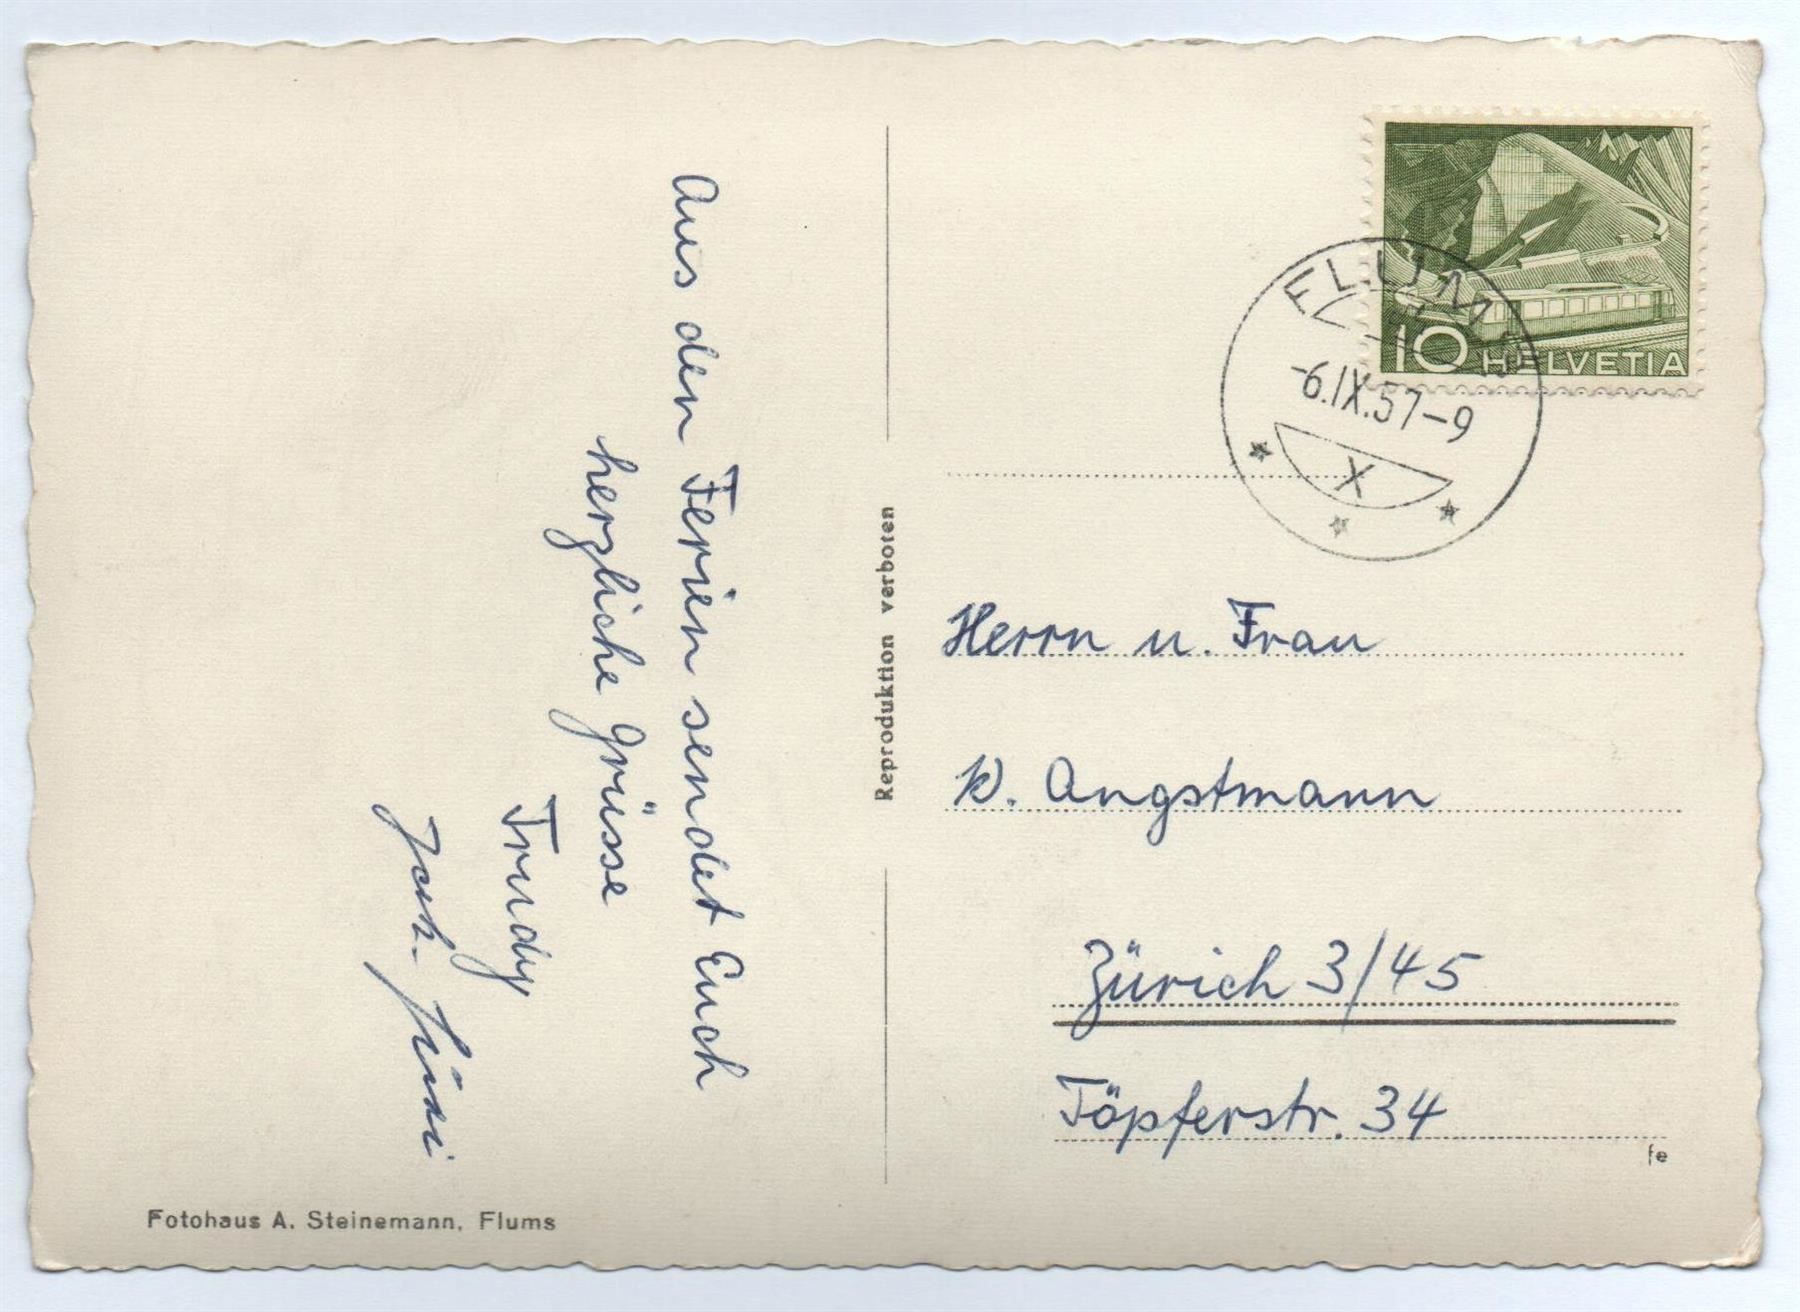 Aus den Ferien sendet Euch
herzliche Grüsse
Trudy
Reproduktion verboten
Fotohaus A. Steinemann, Flums
10 HELVETIA
FLUMS
-6.IX.57-9
X
Herrn u. Frau
Angstmann
Zürich 3/45
Töpferstr. 34
fe